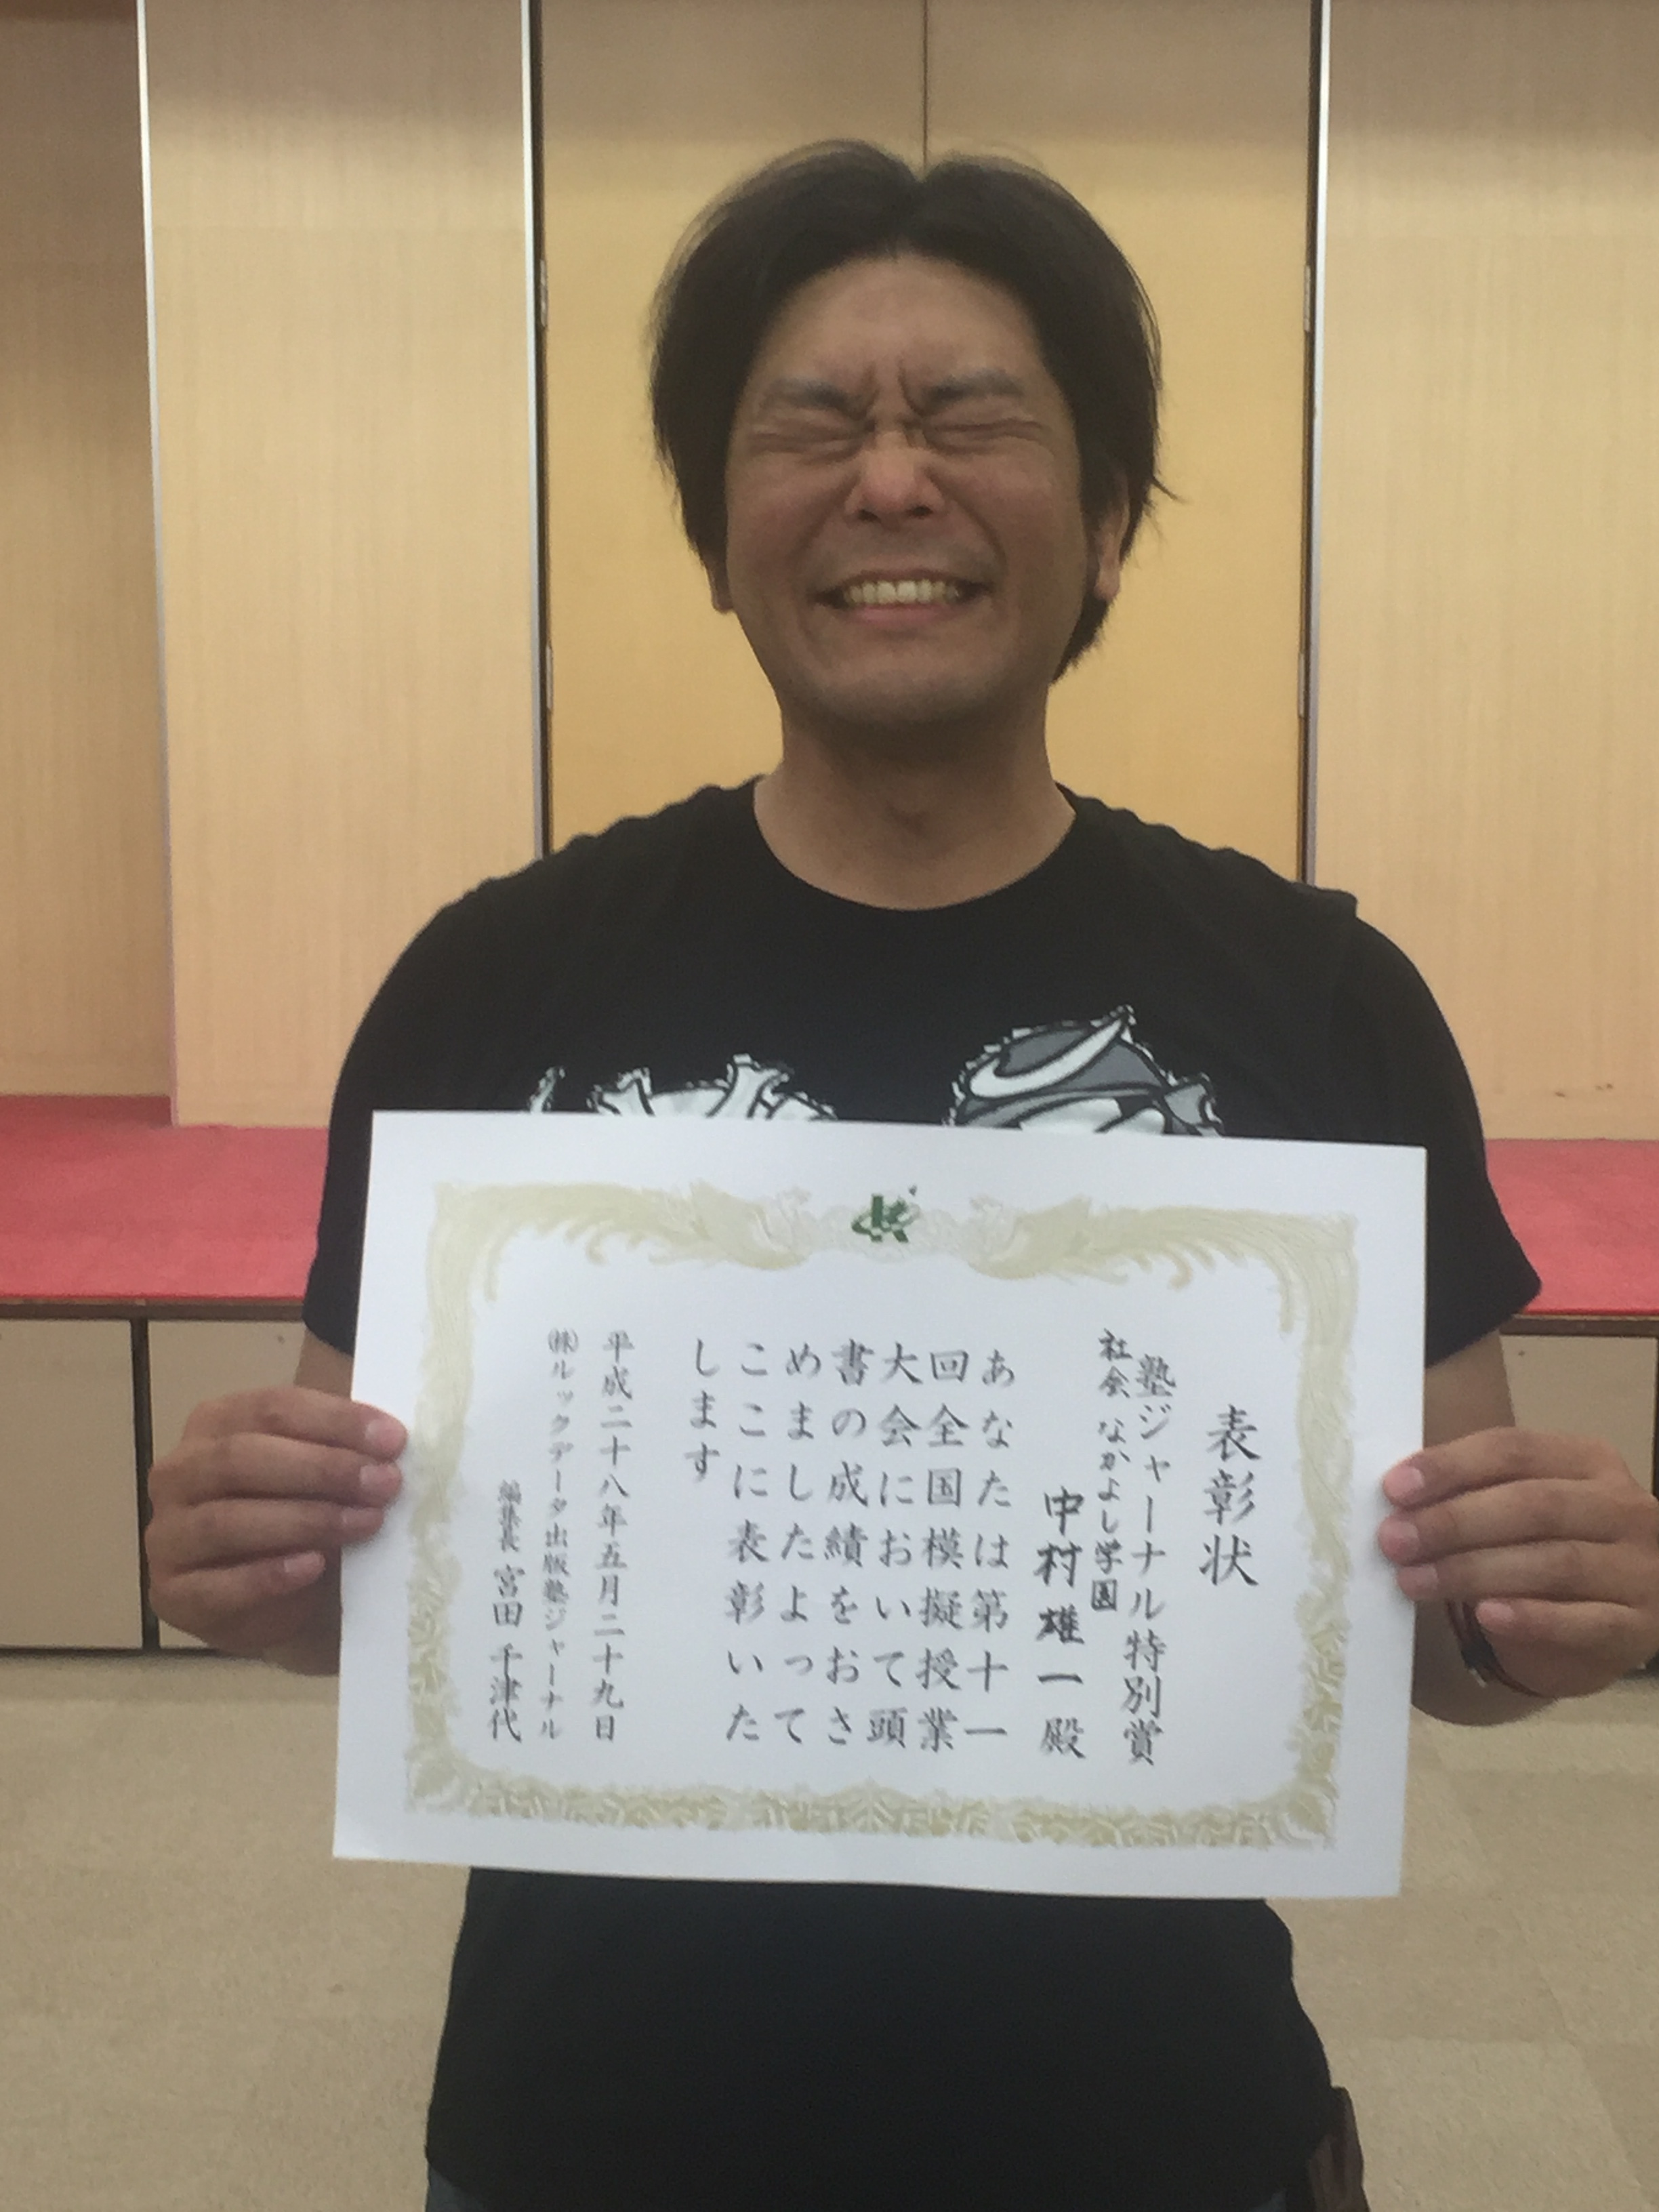 表彰状
塾ジャーナル特別賞
社会 なかよし学園
中村雄一殿
あなたは第十一
回全国模擬授業
大会において頭
書の成績をおさ
めましたよって
ここに表彰いた
します
平成二十八年五月二十九日
㈱ルックデータ出版塾ジャーナル
編集長 宮田 千津代